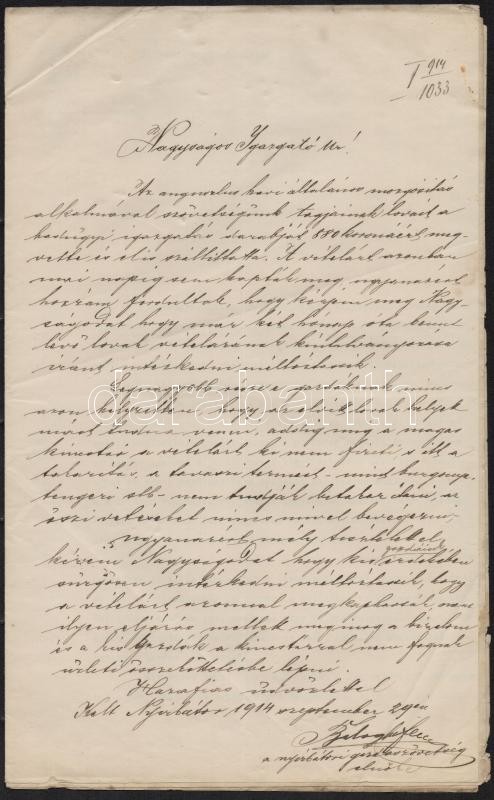 I 914
1033
Nagyságos Igazgató Úr!
Az augusztus havi általános mozgósitás
alkalmával szövetségünk tagjainak lovait a
hadügyi igazgatás darabját 880 koronáért meg-
vette és el is szállittatta. A vételárt azonban
mai napig sem kapták meg ugyanazért
hozzám fordultak, hogy kérjem meg Nagy-
ságodat hogy már két hónap óta bennt
lévő lovak vételárának kiutalványozása
iránt intézkedni méltóztassék.
Legnagyobb része a gazdáknak nincs
azon helyzetben, hogy az elvitt lovak helyett
mást tudna venni, addig mig a magas
kincstár a vételárt ki nem fizeti s itt a
takaritás, a tavaszi termést - mind burgonya,
tengeri stb - nem tudják betakaritani, az
őszi vetéseket nincs mivel bevégezni.
Ugyanazért mély tisztelettel
kérem Nagyságodat hogy kis gazdáink érdekében
sürgősen intézkedni méltóztassék, hogy
a vételárt azonnal megkaphassák, mert
ilyen eljárás mellett meginog a bizalom
és a kis gazdák a kincstárral nem fognak
üzleti összeköttetésbe lépni.
Hazafias üdvözlettel
Kelt Nyirbátor 1914 szeptember 29én
Balogh
a nyirbátori gazdaszövetség
elnöke
darabanth